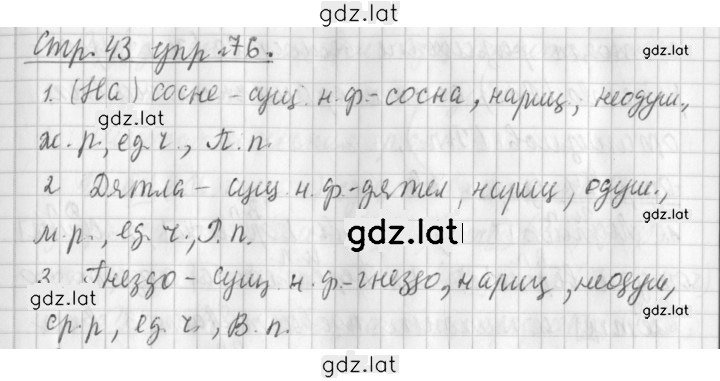 gdz.lat
Стр. 43 упр. 76.
gdz.lat
1. (На) сосне - сущ. н.ф.-сосна, нариц, неодуш.,
gdz.lat
ж.р, ед.ч., П.п.
2 Дятла - сущ. н.ф-дятел, нариц, одуш.,
gdz.lat
м.р., ед.ч., Р.п.
gdz.lat
3. Гнездо - сущ. н.ф.-гнездо, нариц, неодуш,
gdz.lat
ср.р, ед.ч., В.п.
gdz.lat